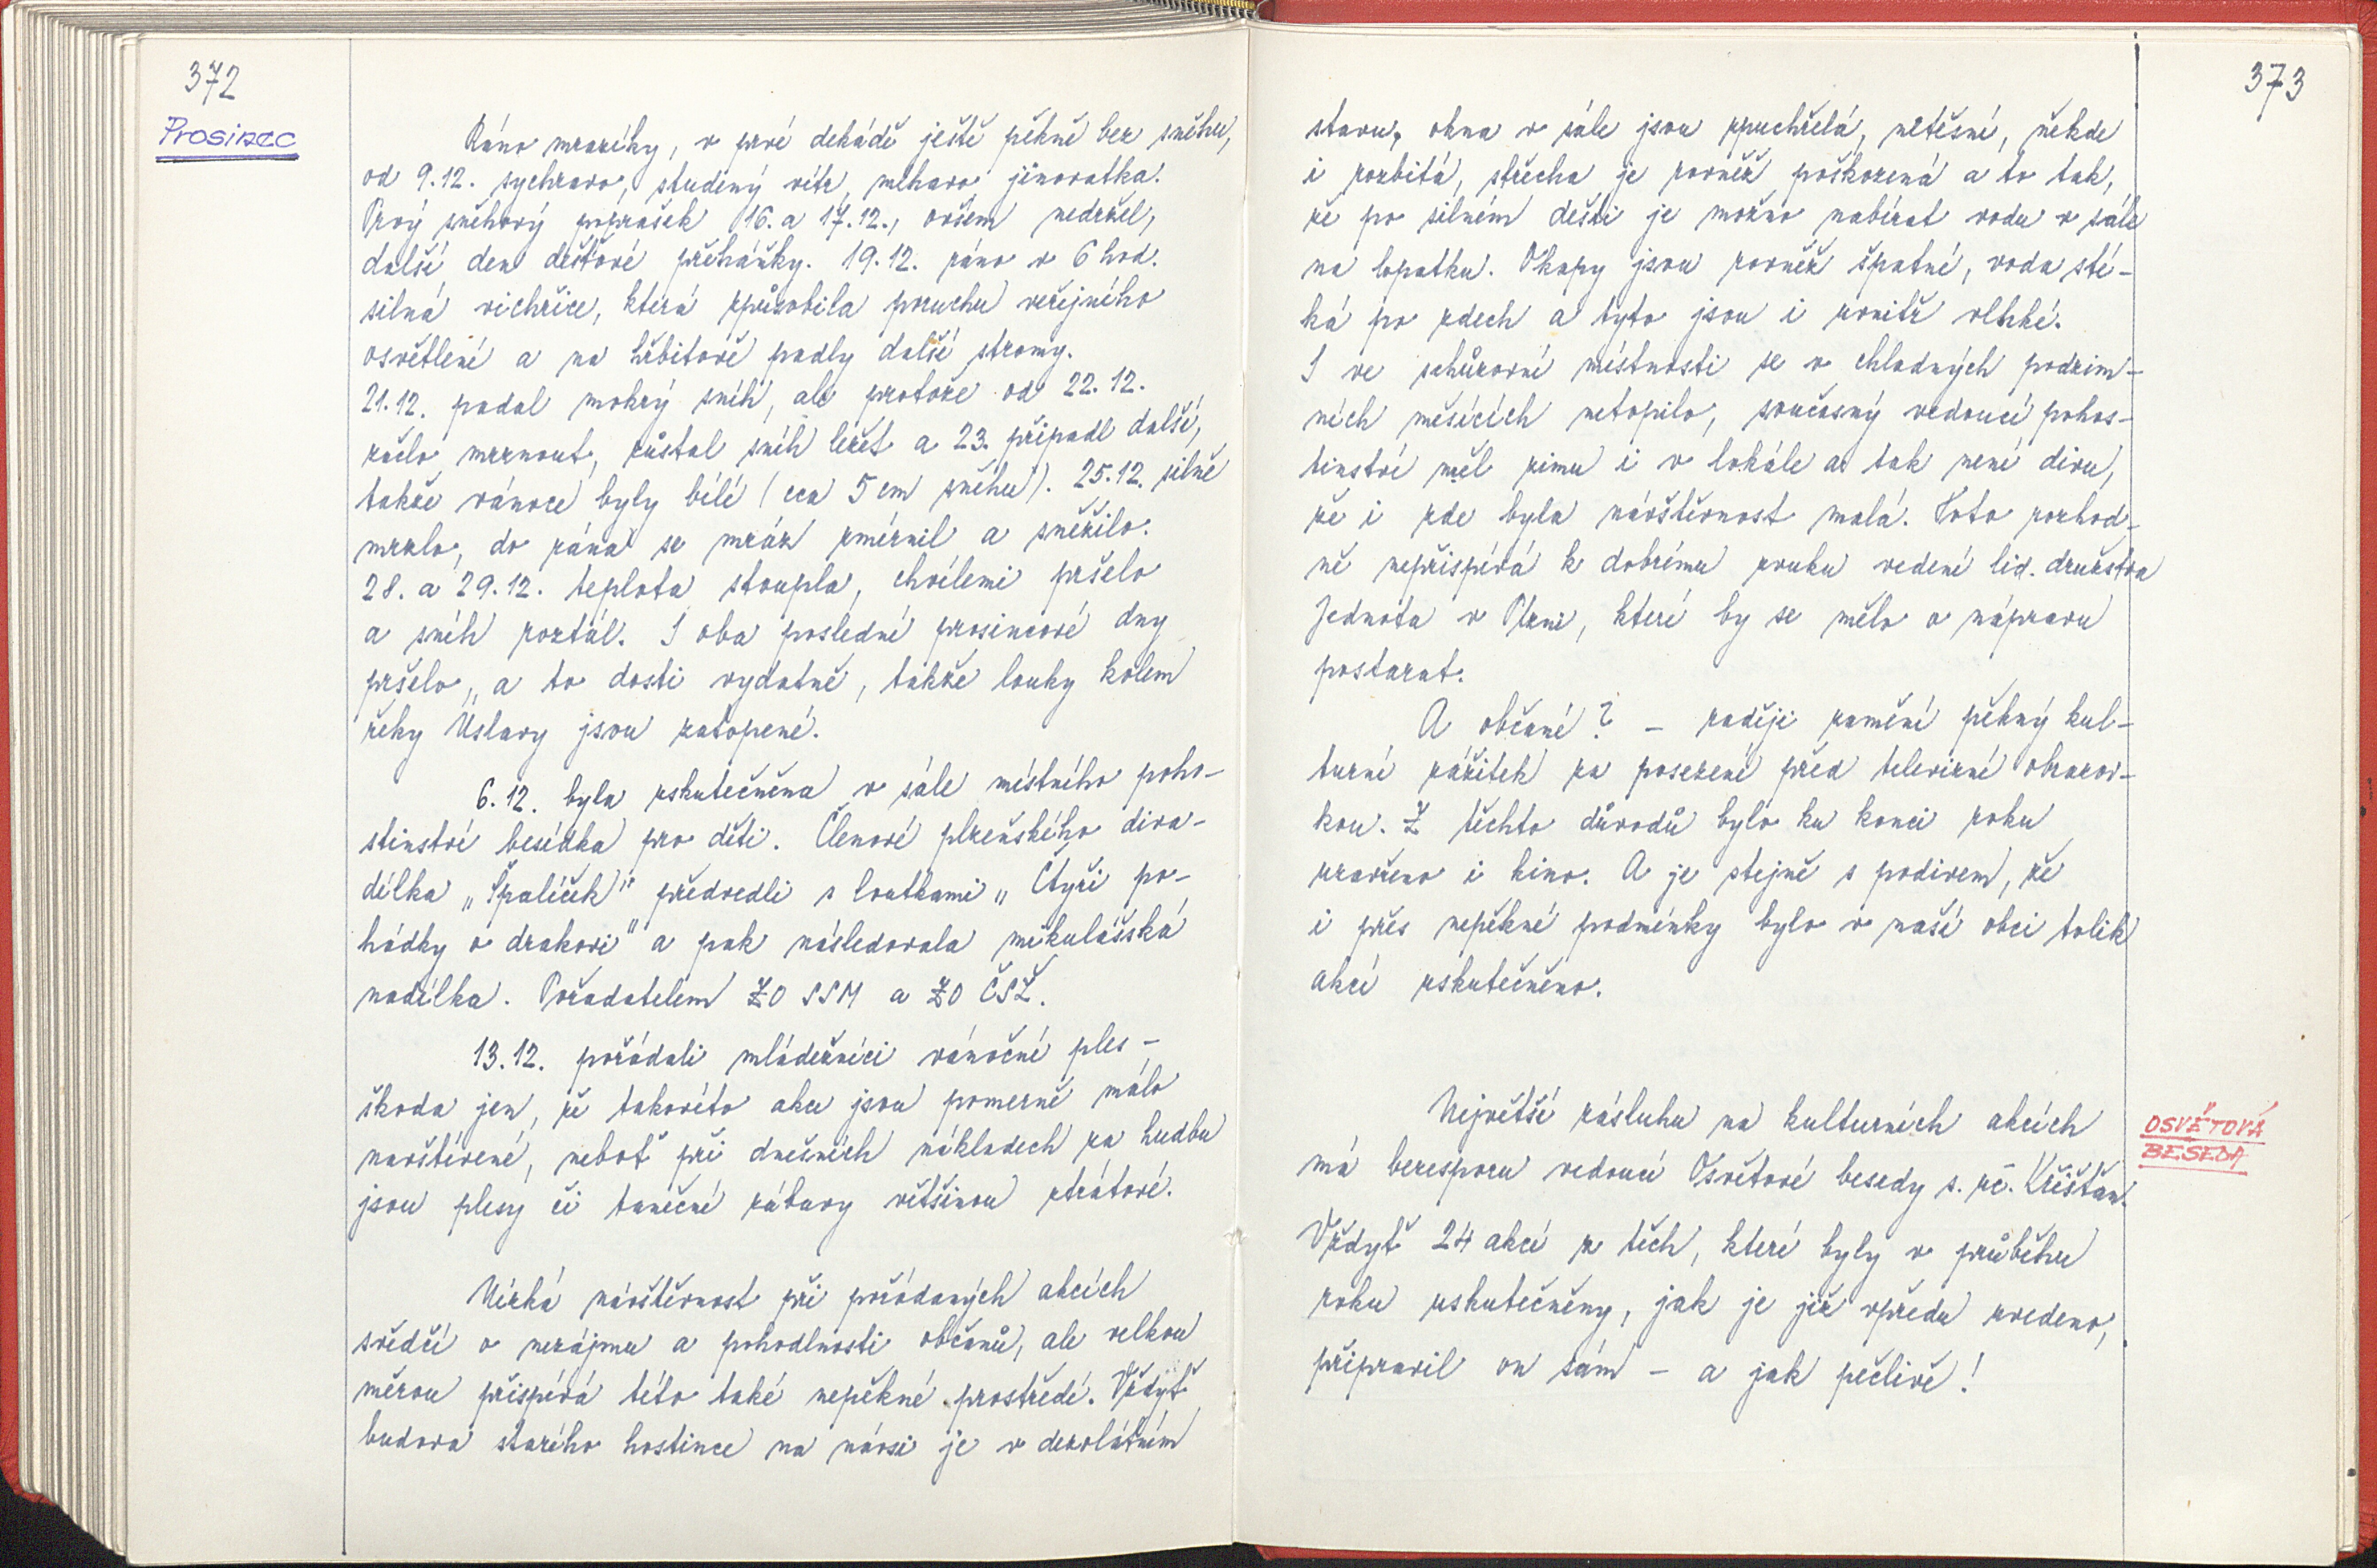 372
Prosinec
Ráno mrazíky, v prvé dekádě ještě pěkně bez sněhu,
od 9.12. sychravo, studený vítr, mlhavo jinovatka.
Prvý sněhový poprašek 16. a 17.12., ovšem nedržel,
další den dešťové přeháňky. 19.12. ráno v 6 hod.
silná vichřice, která způsobila poruchu veřejného
osvětlení a na hřbitově padly další stromy.
21.12. padal mokrý sníh, ale protože od 22.12.
začlo mrznout, zůstal sníh ležet a 23. připadl další,
takže vánoce byly bílé (cca 5 cm sněhu). 25.12. silně
mrzlo, do rána se mráz zmírnil a sněžilo.
28. a 29.12. teplota stoupla, chvílemi pršelo
a sníh roztál. I oba poslední prosincové dny
pršelo, a to dosti vydatně, takže louky kolem
řeky Úslavy jsou zatopené.
6.12. byla uskutečněna v sále místního poho-
stinství besídka pro děti. Členové plzeňského diva-
délka „Špalíček" předvedli s loutkami „Čtyři po-
hádky o drakovi" a pak následovala mikulášská
nadílka. Pořadatelem ZO SSM a ZO ČSŽ.
13.12. pořádali mládežníci vánoční ples –
škoda jen, že takovéto akce jsou pomerně málo
navštívené, neboť při dnešních nákladech za hudbu
jsou plesy či taneční zábavy většinou ztrátové.
Nízká návštěvnost při pořádaných akcích
svědčí o nezájmu a pohodlnosti občanů, ale velkou
měrou přispívá této také nepěkné prostředí. Vždyť
budova starého hostince na návsi je v dezolátním
373
stavu, okna v sále jsou zpuchřelá, netěsní, někde
i rozbitá, střecha je rovněž poškozená a to tak,
že po silném dešti je možno nabírat vodu v sále
na lopatku. Okapy jsou rovněž špatné, voda sté-
ká po zdech a tyto jsou i zvnitř vlhké.
I ve schůzovní místnosti se v chladných podzim-
ních měsících netopilo, současný vedoucí pohos-
tinství měl zimu i v lokále a tak není divu,
že i zde byla návštěvnost malá. Toto rozhod-
ně nepřispívá k dobrému zvuku vedení lid. družstva
Jednota v Plzni, které by se mělo o nápravu
postarat.
A občané? – raději zamění pěkný kul-
turní zážitek za posezení před televizní obrazov-
kou. Z těchto důvodů bylo ku konci roku
uzavřeno i kino. A je stejně s podivem, že
i přes nepěkné podmínky bylo v naší obci tolik
akcí uskutečněno.
OSVĚTOVÁ
BESEDA
Největší zásluhu na kulturních akcích
má bezesporu vedoucí Osvětové besedy s. Křišťan.
Vždyť 24 akcí z těch, které byly v průběhu
roku uskutečněny, jak je již vpředu uvedeno,
připravil on sám – a jak pečlivě!